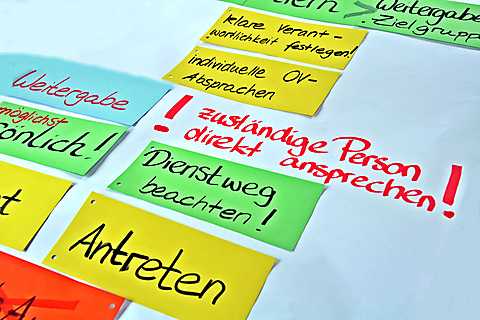 Weitergabe
Zielgruppe
klare Verant-
wortlichkeit festlegen!
individuelle OV-
Absprachen
Weitergabe
möglichst
! zuständige Person
direkt ansprechen!
Dienstweg
beachten!
Antreten